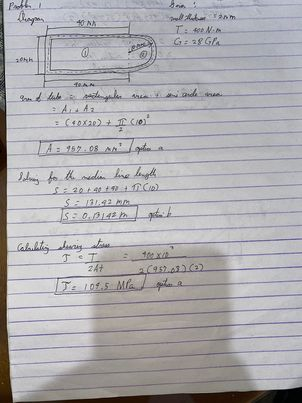 Problem 1
Diagram
Given:
wall thickness = 2mm
T = 400 N·m
G = 28 GPa
40 mm
20mm
①
②
40 mm
Area of tube = rectangular area + semi circle area
= A₁ + A₂
= (40×20) + π/2 (10)²
A = 957.08 mm² option a
Solving for the median line length
S = 20 + 40 + 40 + π(10)
S = 131.42 mm
S = 0.13142 m option b
Calculating shearing stress
τ = T / 2At = 400×10³ / 2(957.08)(2)
τ = 104.5 MPa option a